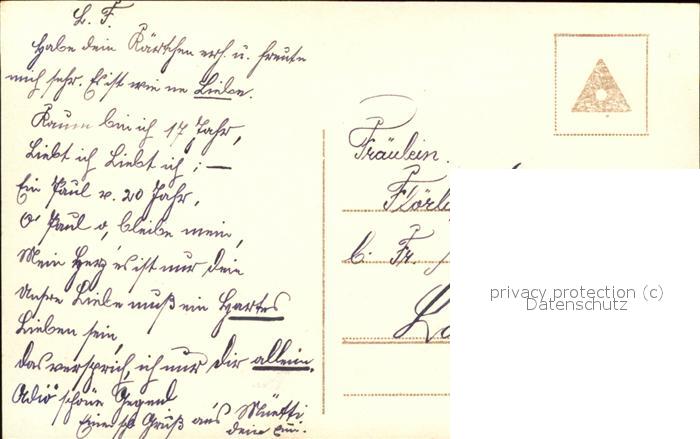 L. F.
Habe dein Kärtchen erh. u. freute
mich sehr. Es ist wie ne Liebe.
Kaum bin ich 17 Jahr,
Liebt ich Liebt ich ; —
Ein Paul v. 20 Jahr,
O' Paul o, bleibe mein,
Mein Herz es ist nur dein
Unsre Liebe muß ein Hartes
Lieben sein,
das versprich, ich nur dir allein.
Adiö schöne Gegend
Einen Gruß aus
dein
Fräulein
b. Fr.
privacy protection (c)
Datenschutz